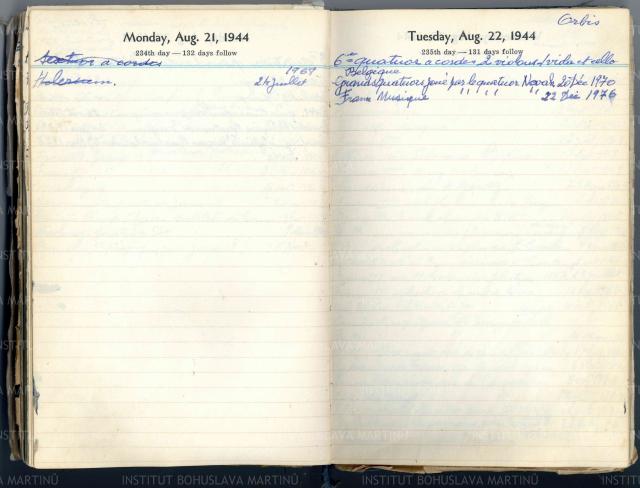 Monday, Aug. 21, 1944
234th day — 132 days follow
Sextuor a cordes
1969
24 Juillet
Orbis
Tuesday, Aug. 22, 1944
235th day — 131 days follow
6me Quatuor a cordes 2 violons 1 viola et cello
Belgique
quatuors joué par le quatuor Novak 20 Déc 1970
France Musique " " " 22 Déc 1976
INSTITUT BOHUSLAVA MARTINŮ